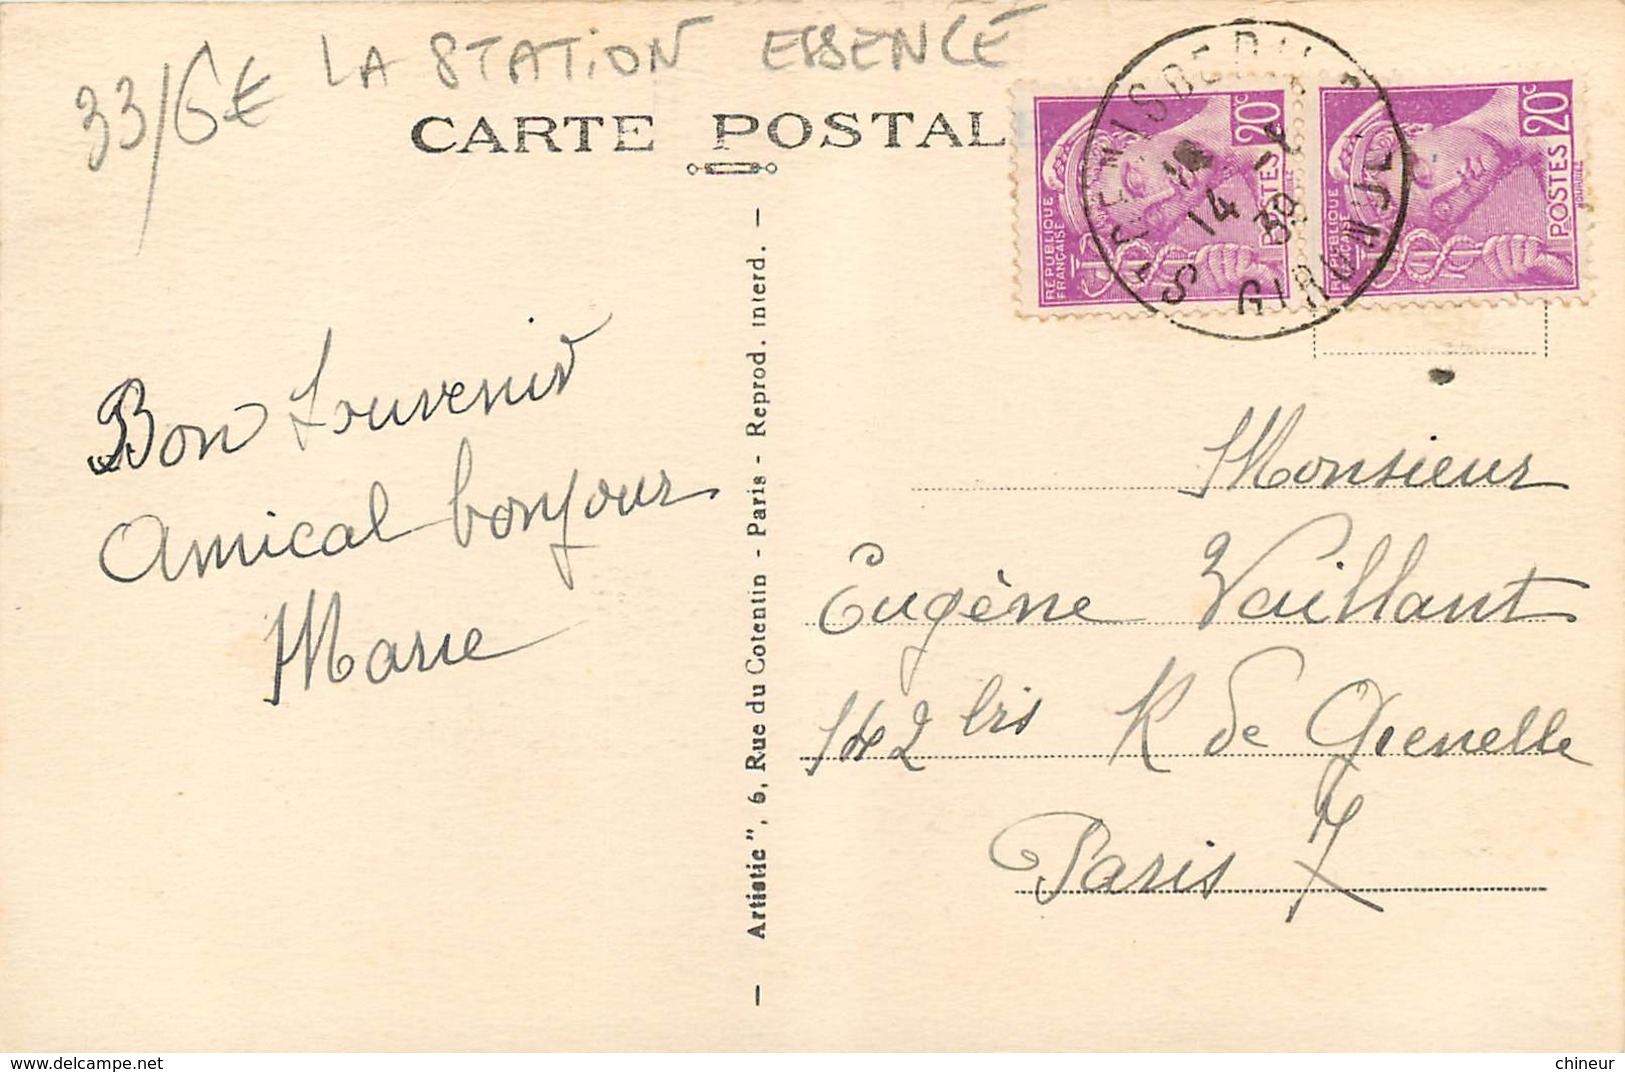 33/6€ LA STATION ESSENCE
CARTE POSTAL
RÉPUBLIQUE FRANÇAISE
20c
POSTES
RÉPUBLIQUE FRANÇAISE
20c
POSTES
14
39
GIRONDE
Bon Souvenir
Amical bonjour
Marie
— Artistic", 6, Rue du Cotentin - Paris - Reprod. interd. —
Monsieur
Eugène Vaillant
142 bis R de Grenelle
Paris 7
www.delcampe.net
chineur